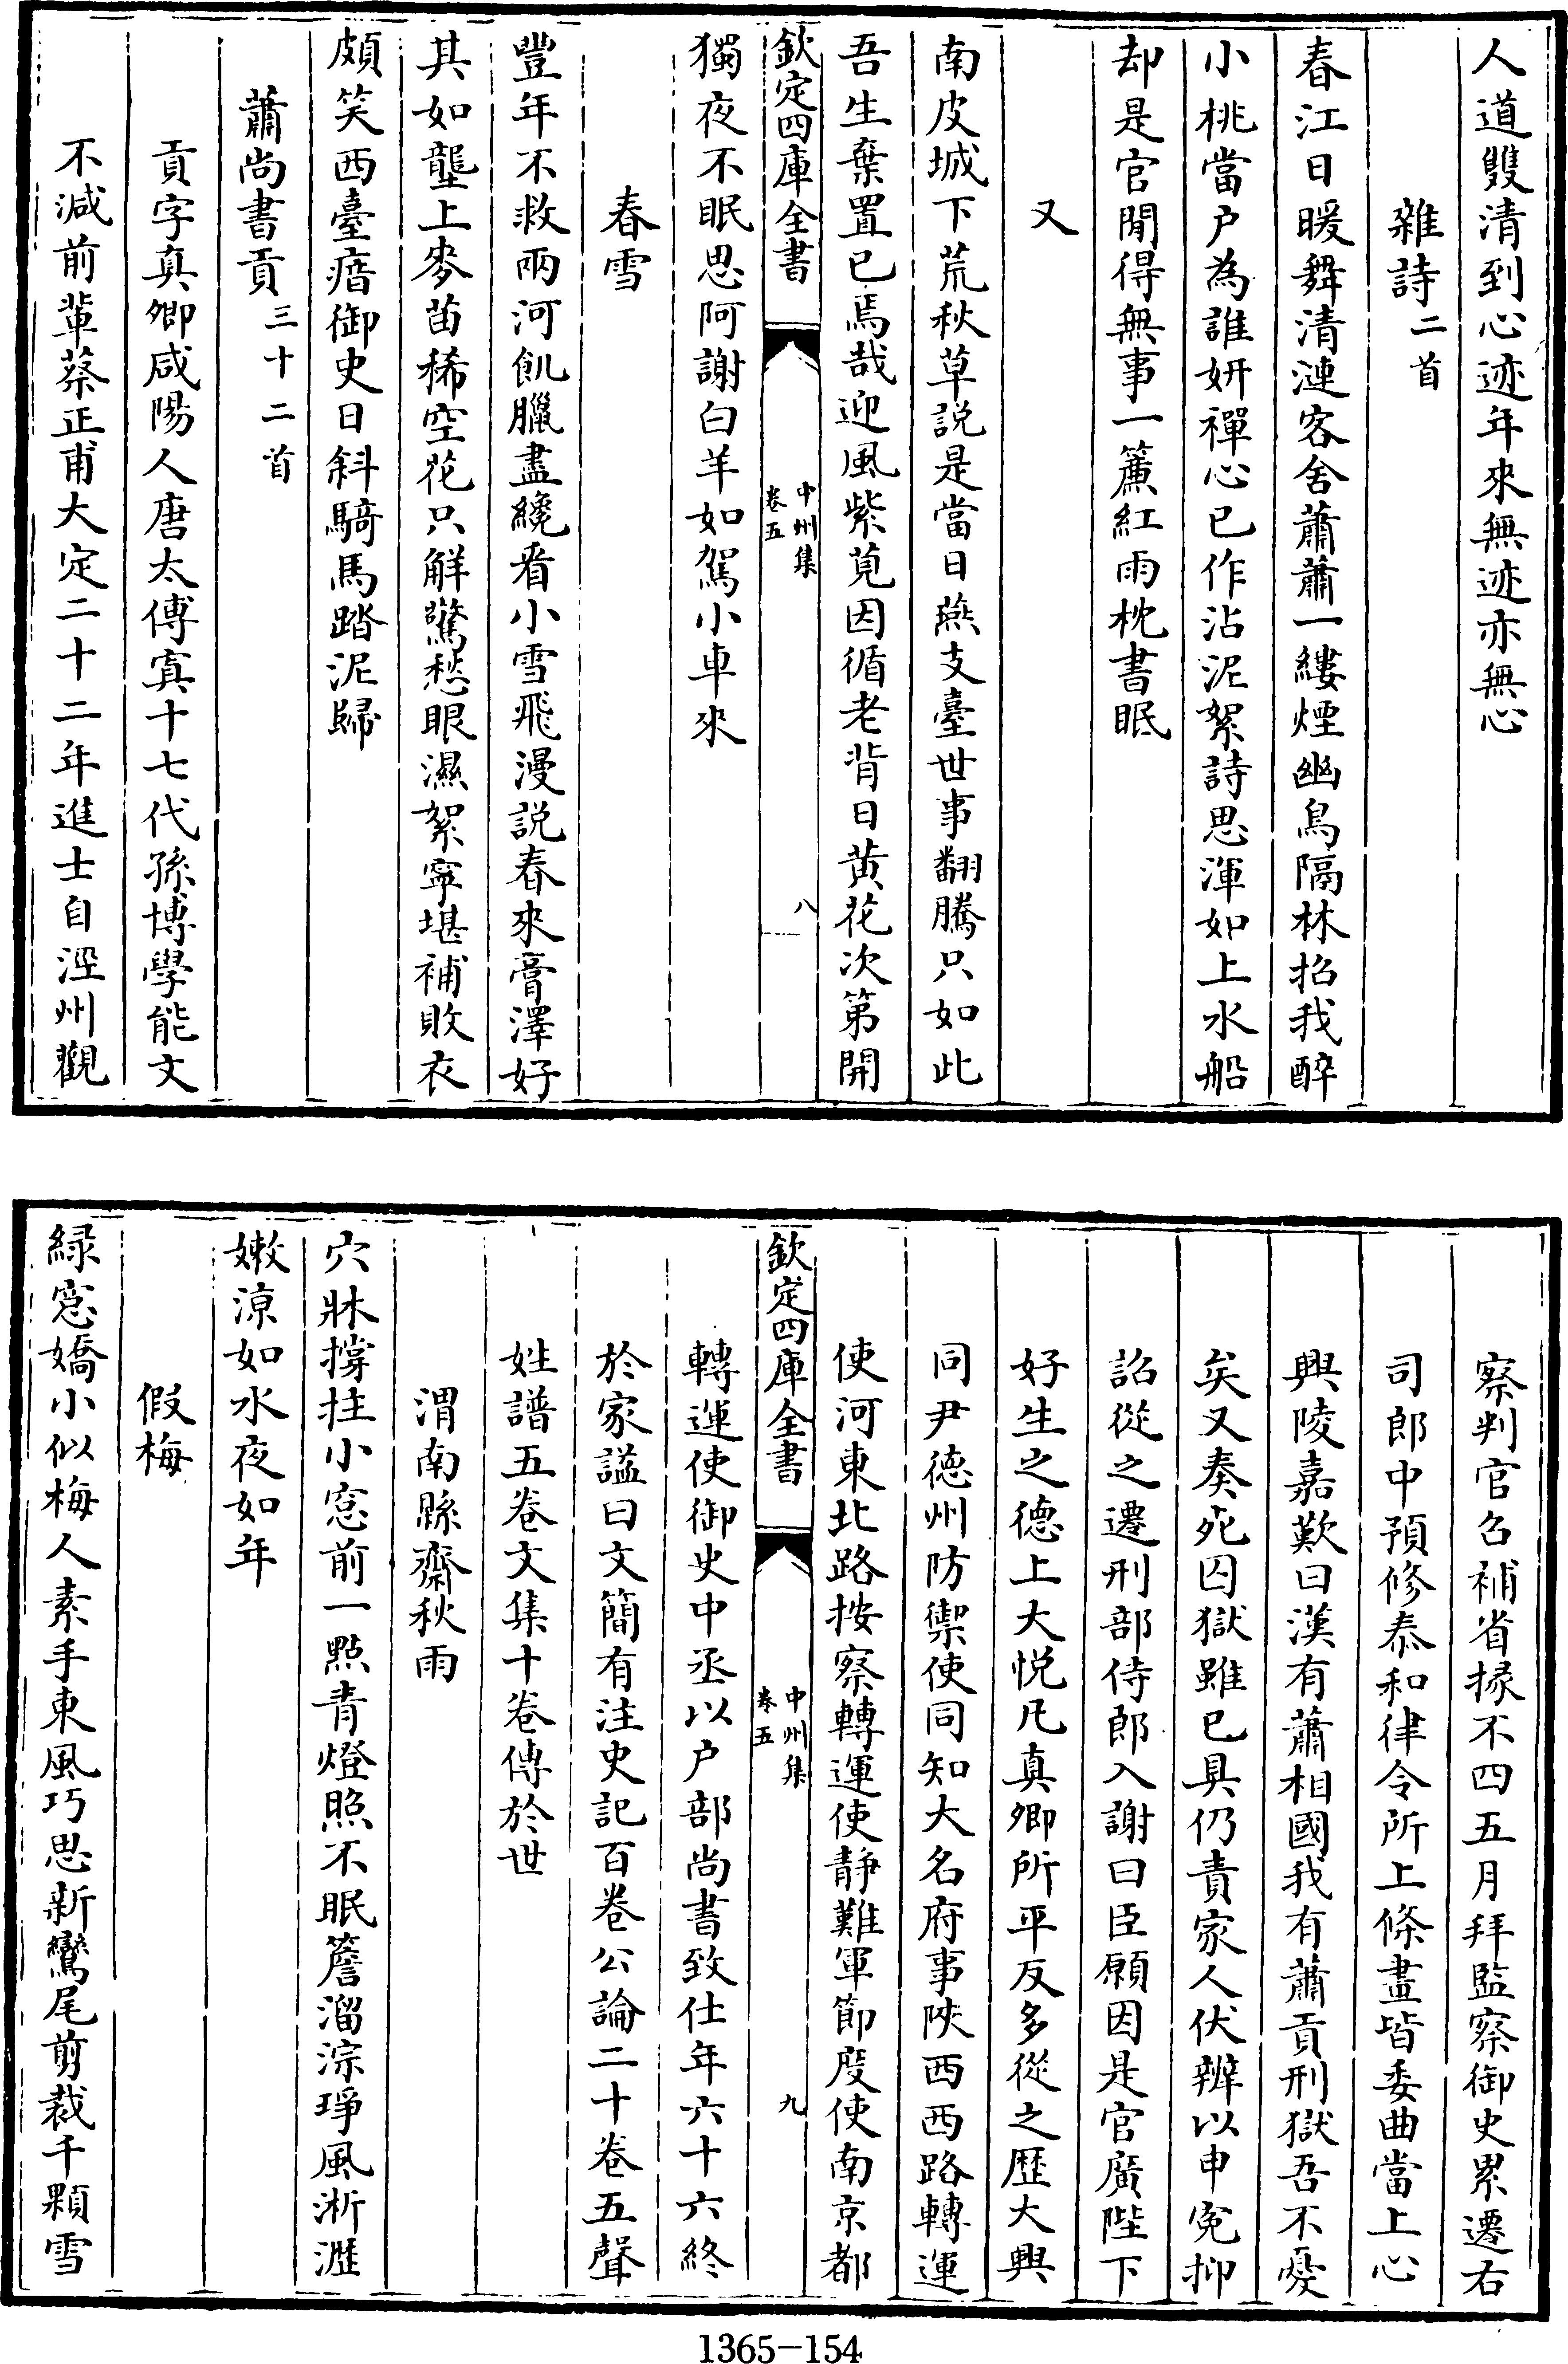 人道雙清到心迹年來無迹亦無心
雜詩二首
春江日暖舞清漣客舍蕭蕭一縷煙幽鳥隔林招我醉
小桃當户為誰妍禪心已作沾泥絮詩思渾如上水船
却是官閒得無事一簾紅雨枕書眠
又
南皮城下荒秋草説是當日燕支臺世事翻騰只如此
吾生棄置已焉哉迎風紫莧因循老背日黄花次第開
欽定四庫全書
中州集
卷五
八
獨夜不眠思阿謝白羊如駕小車來
春雪
豐年不救兩河飢臘盡纔看小雪飛漫説春來膏澤好
其如壟上麥苗稀空花只解驚愁眼濕絮寧堪補敗衣
頗笑西臺瘖御史日斜騎馬踏泥歸
蕭尚書貢三十二首
貢字真卿咸陽人唐太傅寘十七代孫博學能文
不減前輩蔡正甫大定二十二年進士自涇州觀
察判官召補省掾不四五月拜監察御史累遷右
司郎中預修泰和律令所上條畫皆委曲當上心
興陵嘉歎曰漢有蕭相國我有蕭貢刑獄吾不憂
矣又奏死囚獄雖已具仍責家人伏辨以申寃抑
詔從之遷刑部侍郎入謝曰臣願因是官廣陛下
好生之德上大悦凡真卿所平反多從之歴大興
同尹徳州防禦使同知大名府事陜西西路轉運
使河東北路按察轉運使靜難軍節度使南京都
欽定四庫全書
中州集
卷五
九
轉運使御史中丞以户部尚書致仕年六十六終
於家謚曰文簡有注史記百卷公論二十卷五聲
姓譜五卷文集十卷傳於世
渭南縣齋秋雨
穴牀撐拄小窓前一點青燈照不眠簷溜淙琤風淅瀝
嫩涼如水夜如年
假梅
緑窓嬌小似梅人素手東風巧思新鸞尾剪裁千顆雪
1365-154